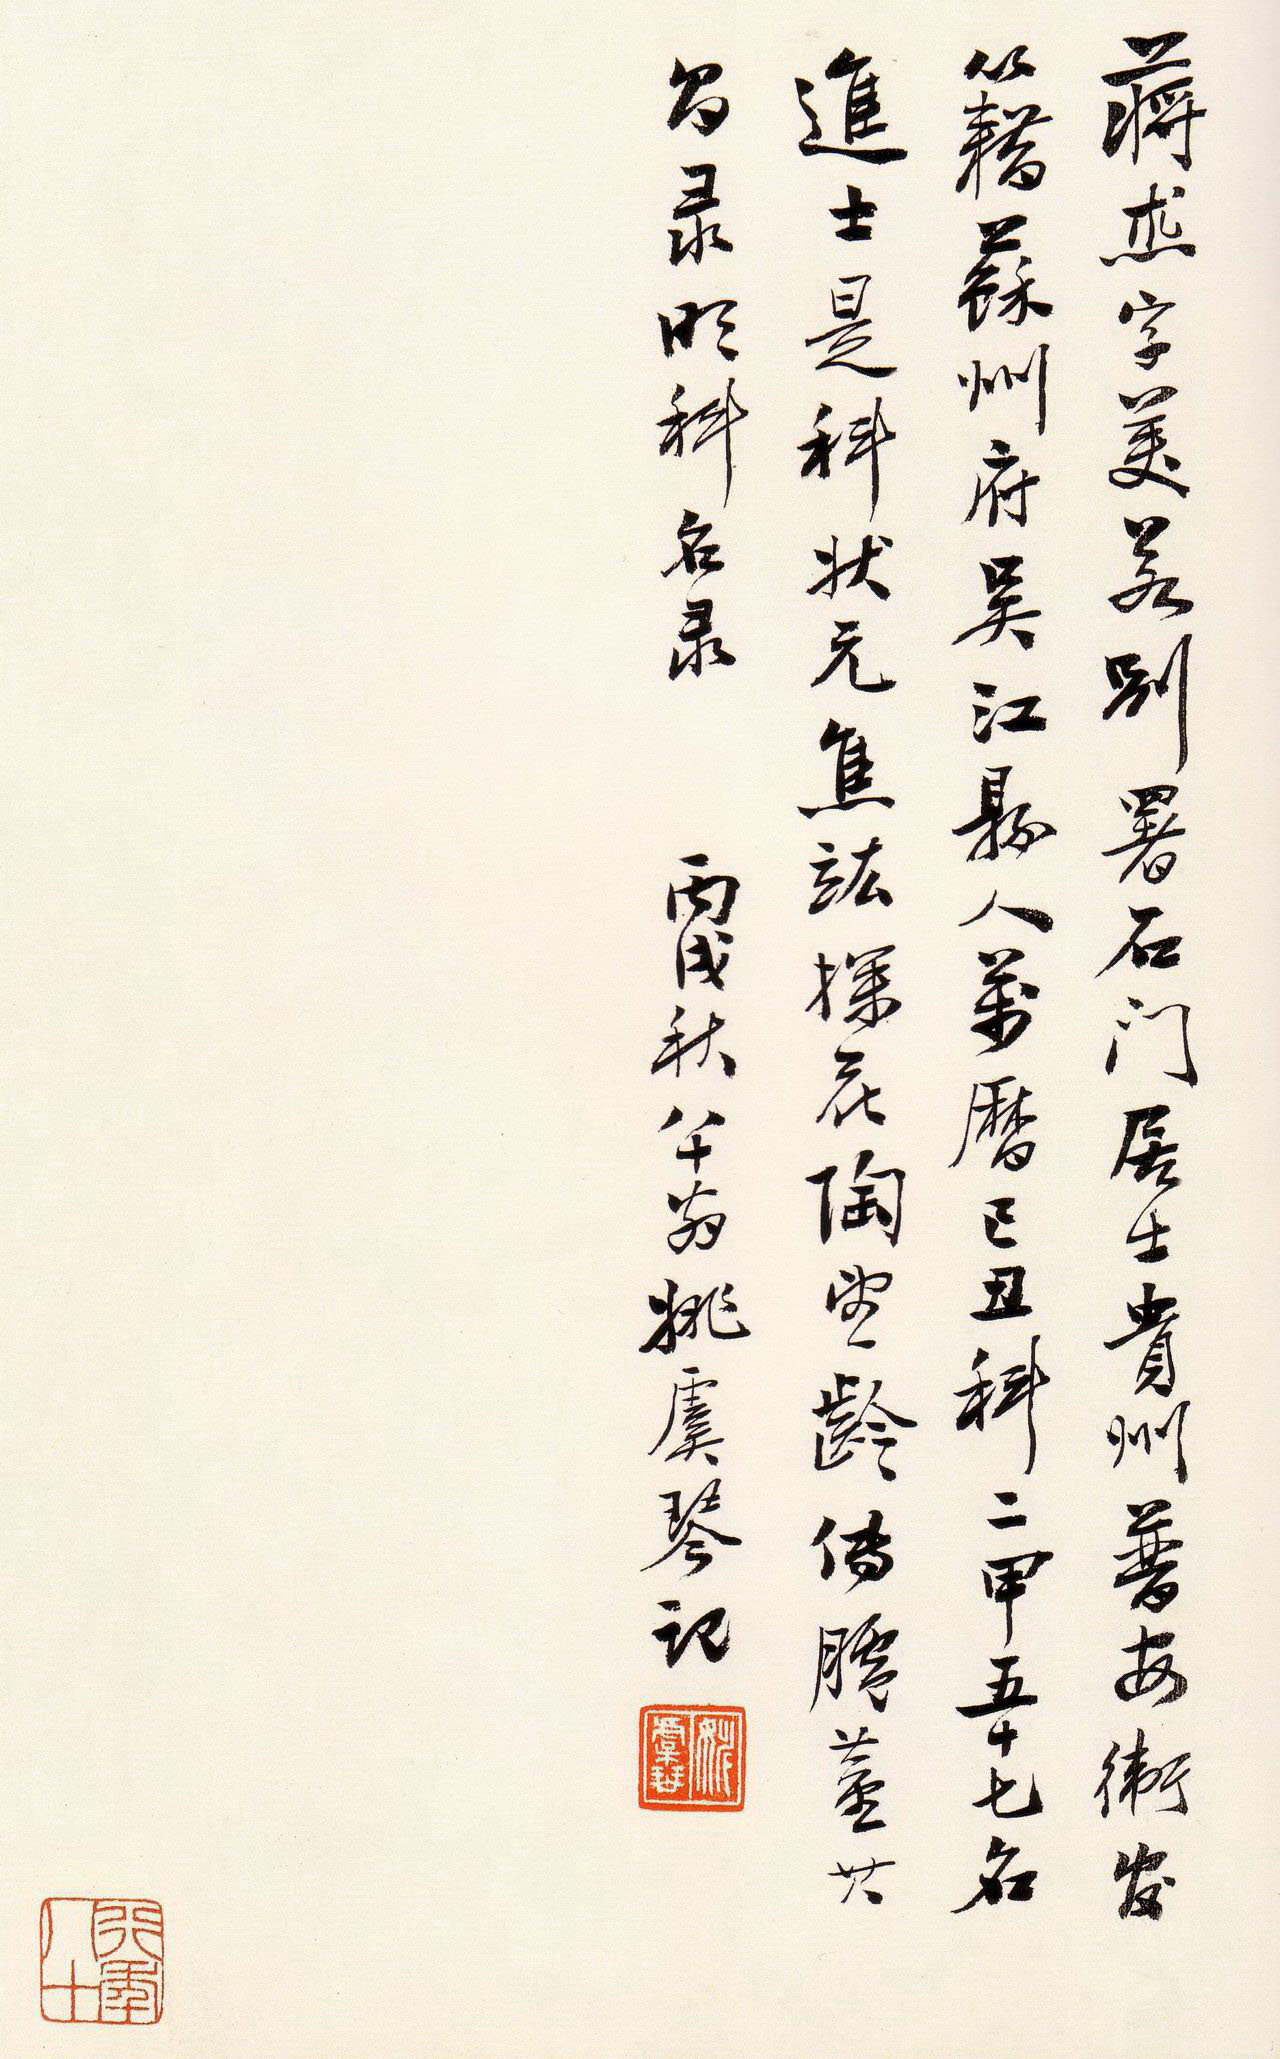 蔣杰字美若別署石門居士貴州普安衛
籍蘇州府吳江縣人萬曆己丑科二甲五十七名
進士是科狀元焦竑探花陶望齡傳臚董其
昌录明科名录 丙戌秋八十翁姚虞琴記
姚虞琴
行年八十